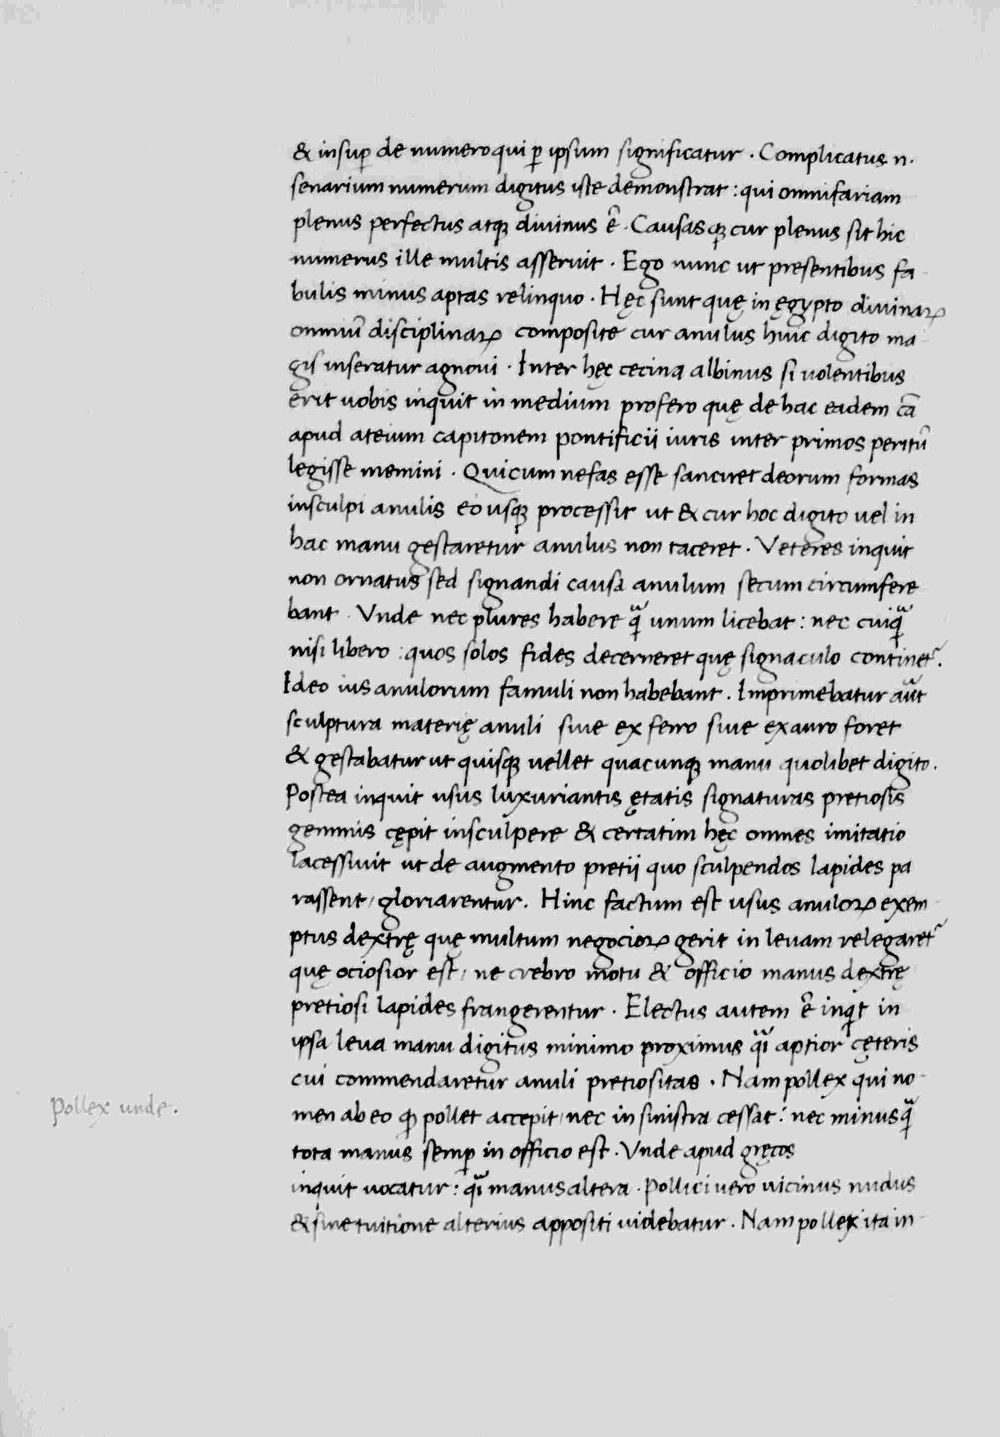 & insup̲ de numero qui p̲ ipsum significatur . Complicatus n.
senarium numerum digitus iste demonstrat : qui omnifariam
plenus perfectus atq̲ divinus ē . Causasq̲ cur plenus sit hic
numerus ille multis asseruit . Ego nunc ut presentibus fa-
bulis minus aptas relinquo . Hęc sunt quę in ęgypto diuinaꝝ
omniū disciplinaꝝ composite cur anulus huic digito ma-
gis inseratur agnoui . Inter hęc cecina albinus si uolentibus
erit uobis inquit in medium profero quę de hac eadem cā
apud ateium capitonem pontificii iuris inter primos peritū
legisse memini . Qui cum nefas esse sanciret deorum formas
insculpi anulis eo usq̲ processit ut & cur hoc digito uel in
hac manu gestaretur anulus non taceret . Veteres inquit
non ornatus sed signandi causa anulum secum circumfere
bant . Vnde nec plures habere q̄ unum licebat : nec cuiq̄
nisi libero : quos solos fides decerneret quę signaculo continet᷑ .
Ideo ius anulorum famuli non habebant . Imprimebatur aūt
sculptura materię anuli siue ex ferro siue ex auro foret
& gestabatur ut quisq̲ uellet quacunq̲ manu quolibet digito .
Postea inquit usus luxuriantis ętatis signaturas pretiosis
gemmis cępit insculpere & certatim hęc omnes imitatio
lacessiuit ut de augmento pretii quo sculpendos lapides pa
rassent / gloriarentur . Hinc factum est usus anuloꝝ exem-
ptus dextrę quę multum negocioꝝ gerit in leuam relegaret᷑
quę ociosior est / ne crebro motu & officio manus dextrę
pretiosi lapides frangerentur . Electus autem ē inqͥt in
ipsa leua manu digitus minimo proximus q̄i aptior cęteris
cui commendaretur anuli pretiositas . Nam pollex qui no-
men ab eo ꝙ pollet accepit / nec in sinistra cessat : nec minus q̄
tota manus semp̲ in officio est . Vnde apud gręcos
inquit uocatur : q̄i manus altera . Pollici uero uicinus nudus
& sine tuitione alterius appositi uidebatur . Nam pollex ita in-
Pollex unde .